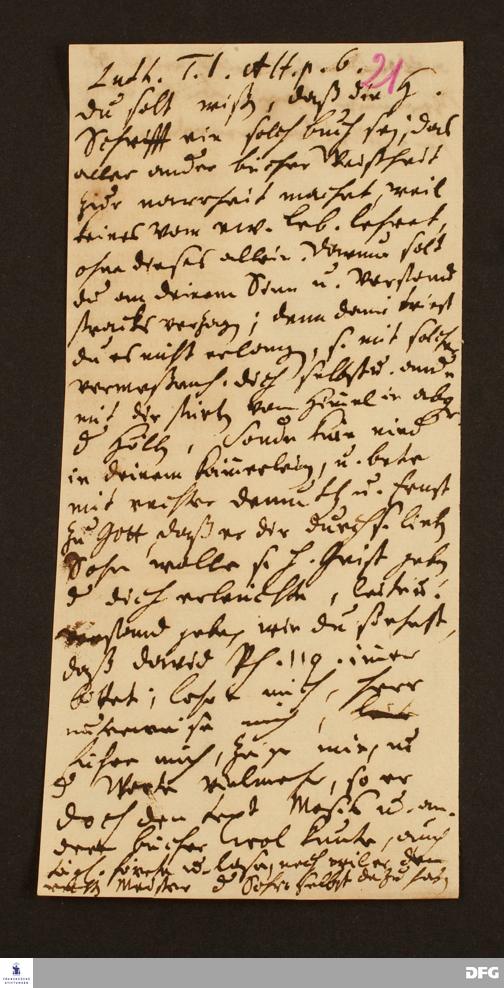 Luth. T. 1. Alt. p. 6. 21
du solt wißen, daß die H.
Schrifft ein solch buch sey, das
aller ander bücher Weißheit
zur narrheit machet, weil
keines vom ew. leb. lehret,
ohne dieses allein. Darum solt
du an deinem Sinn u. Verstand
stracks verzagen; denn damit wirst
du es nicht erlangen, s. mit solcher
vermeßenh. dich selbst u. andre
mit dir stürtzen vom Himel in abgr
d Höllen, sondern knie nied
in deinem kämerlein, u. bete
mit rechter demuth u. Ernst
zu Gott, daß er dir durch s. lieben
Sohn wolle s. H. Geist geben
d dich erleuchte, leite u.
verstand gebe, wie du siehest,
daß David Ps. 119. imer
bittet; lehre mich, Herr
unterweise mich,
führe mich, zeige mir, u
d Worte vielmehr, so er
doch den text Mosis u. an-
derer bücher wol kunte, auch
tägl. hörete u. lase, noch will er den
rechten Meister d Schrift selbst dazu haben
FRANCKESCHE
STIFTUNGEN
DFG